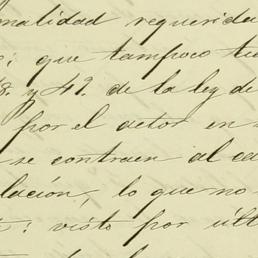 malidad requerida
; que tampoco tu
8. y 4º. de la ley de
por el actor en
se contraen al ca
lación, lo que no
: visto por últ